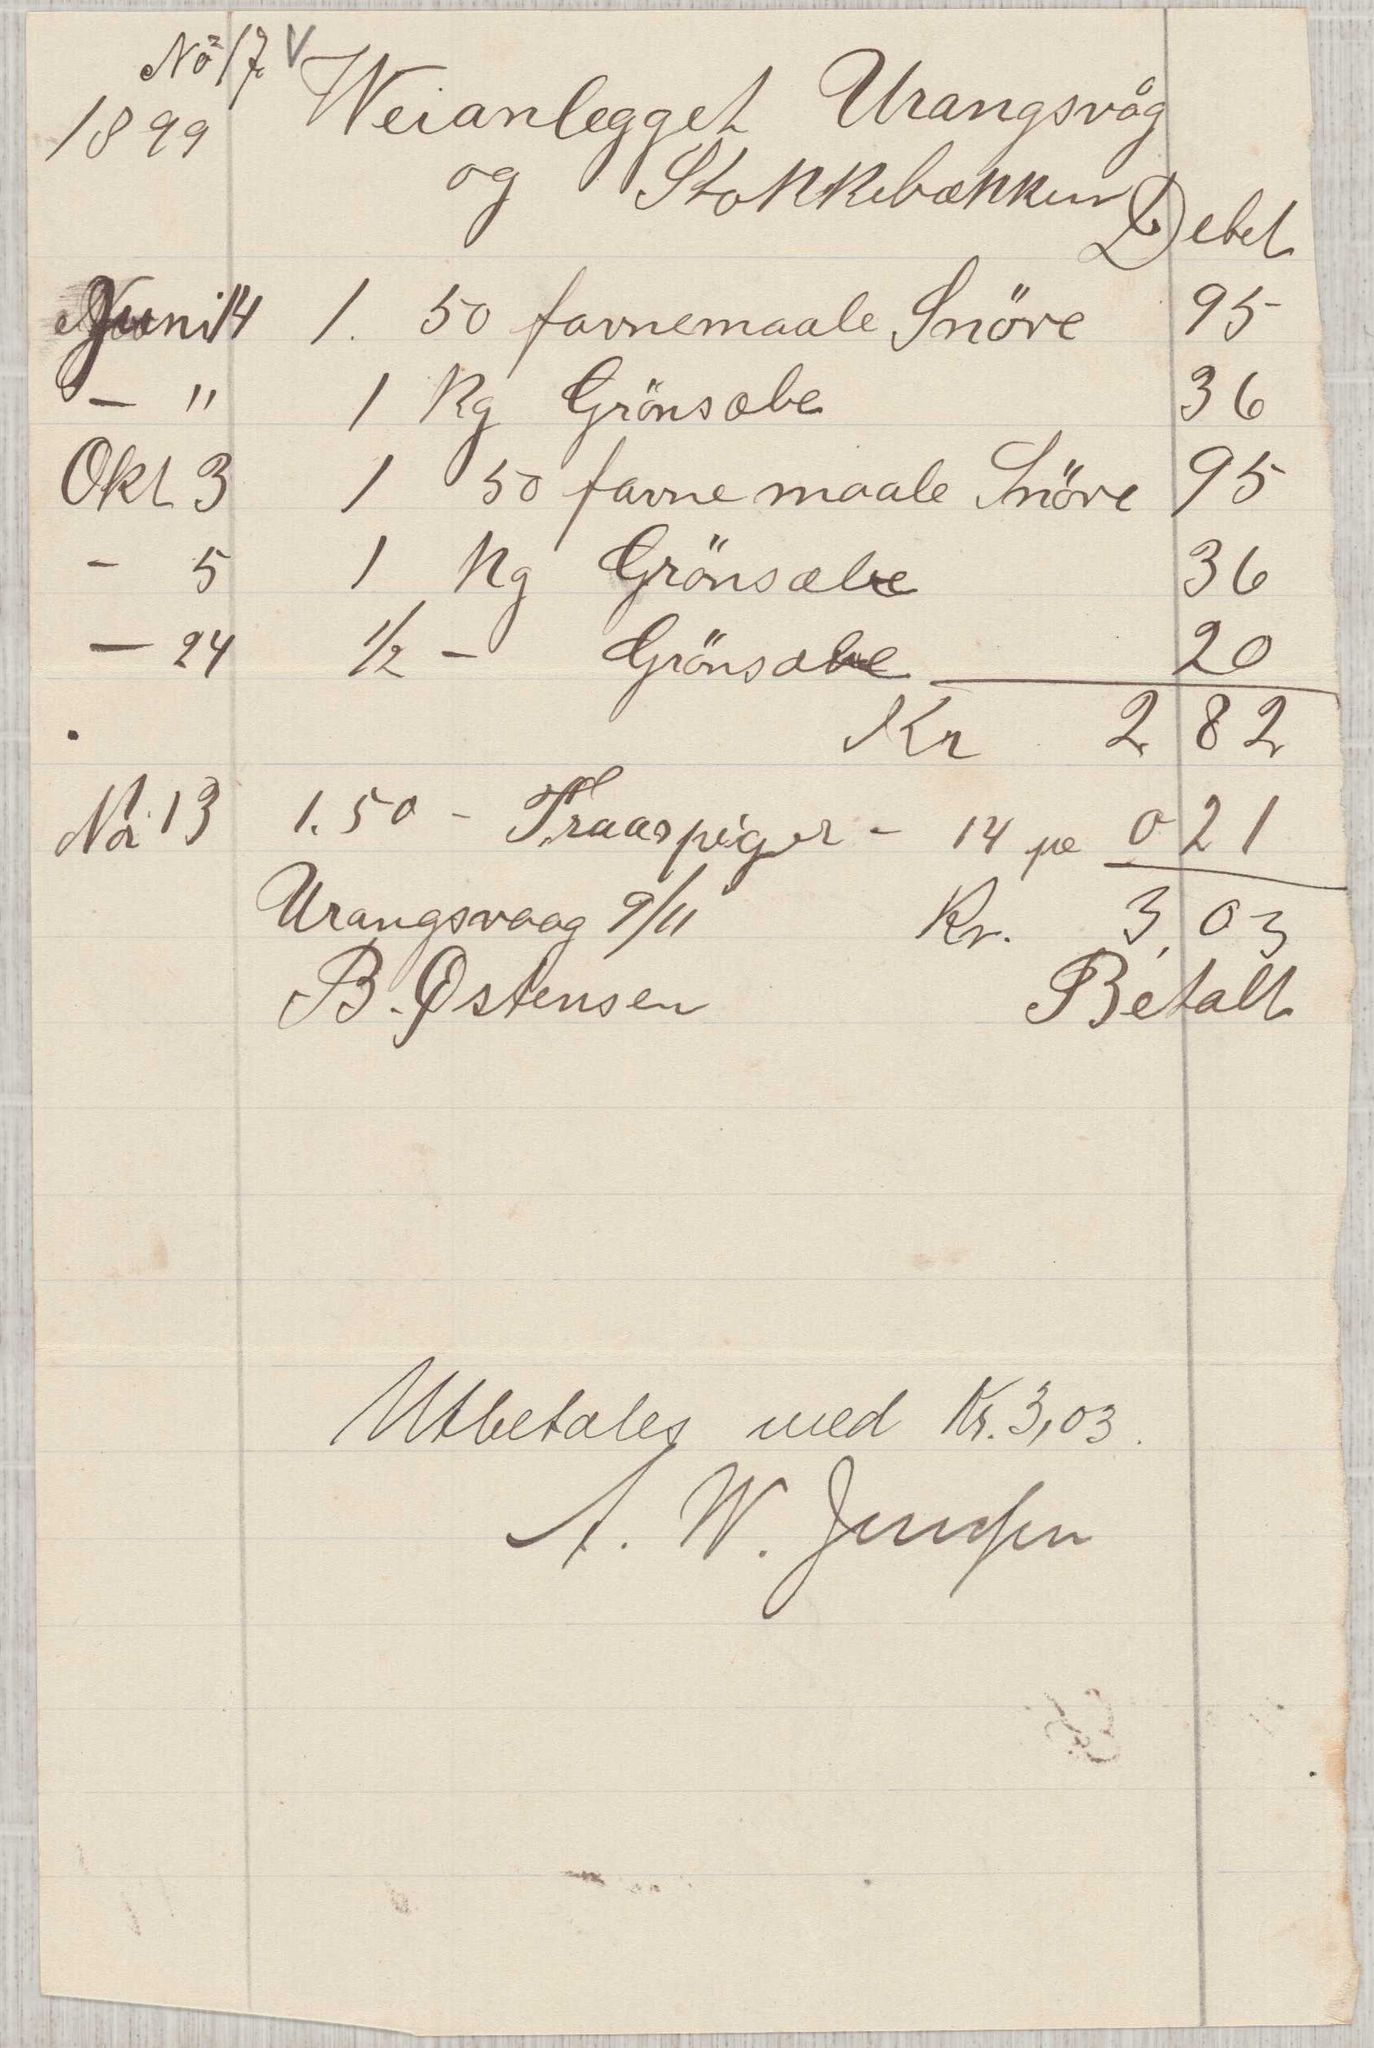 No 17. V
1899 Weianlegget Urangsvåg
og Stokkebækken
Debet
Juni 14 1. 50 favnemaale Snöre 95
- " 1 Kg Grönsæbe 36
Okt 3 1 50 favnemaale Snöre 95
- 5 1 Kg Grönsæbe 36
- 24 1/2 - Grönsæbe 20
Kr 2 82
13 1.50 - 14 0 21
Urangsvaag 9/11 Kr. 3,03
B. Østensen Betalt
Utbetales med Kr. 3,03.
A. W. Jensen